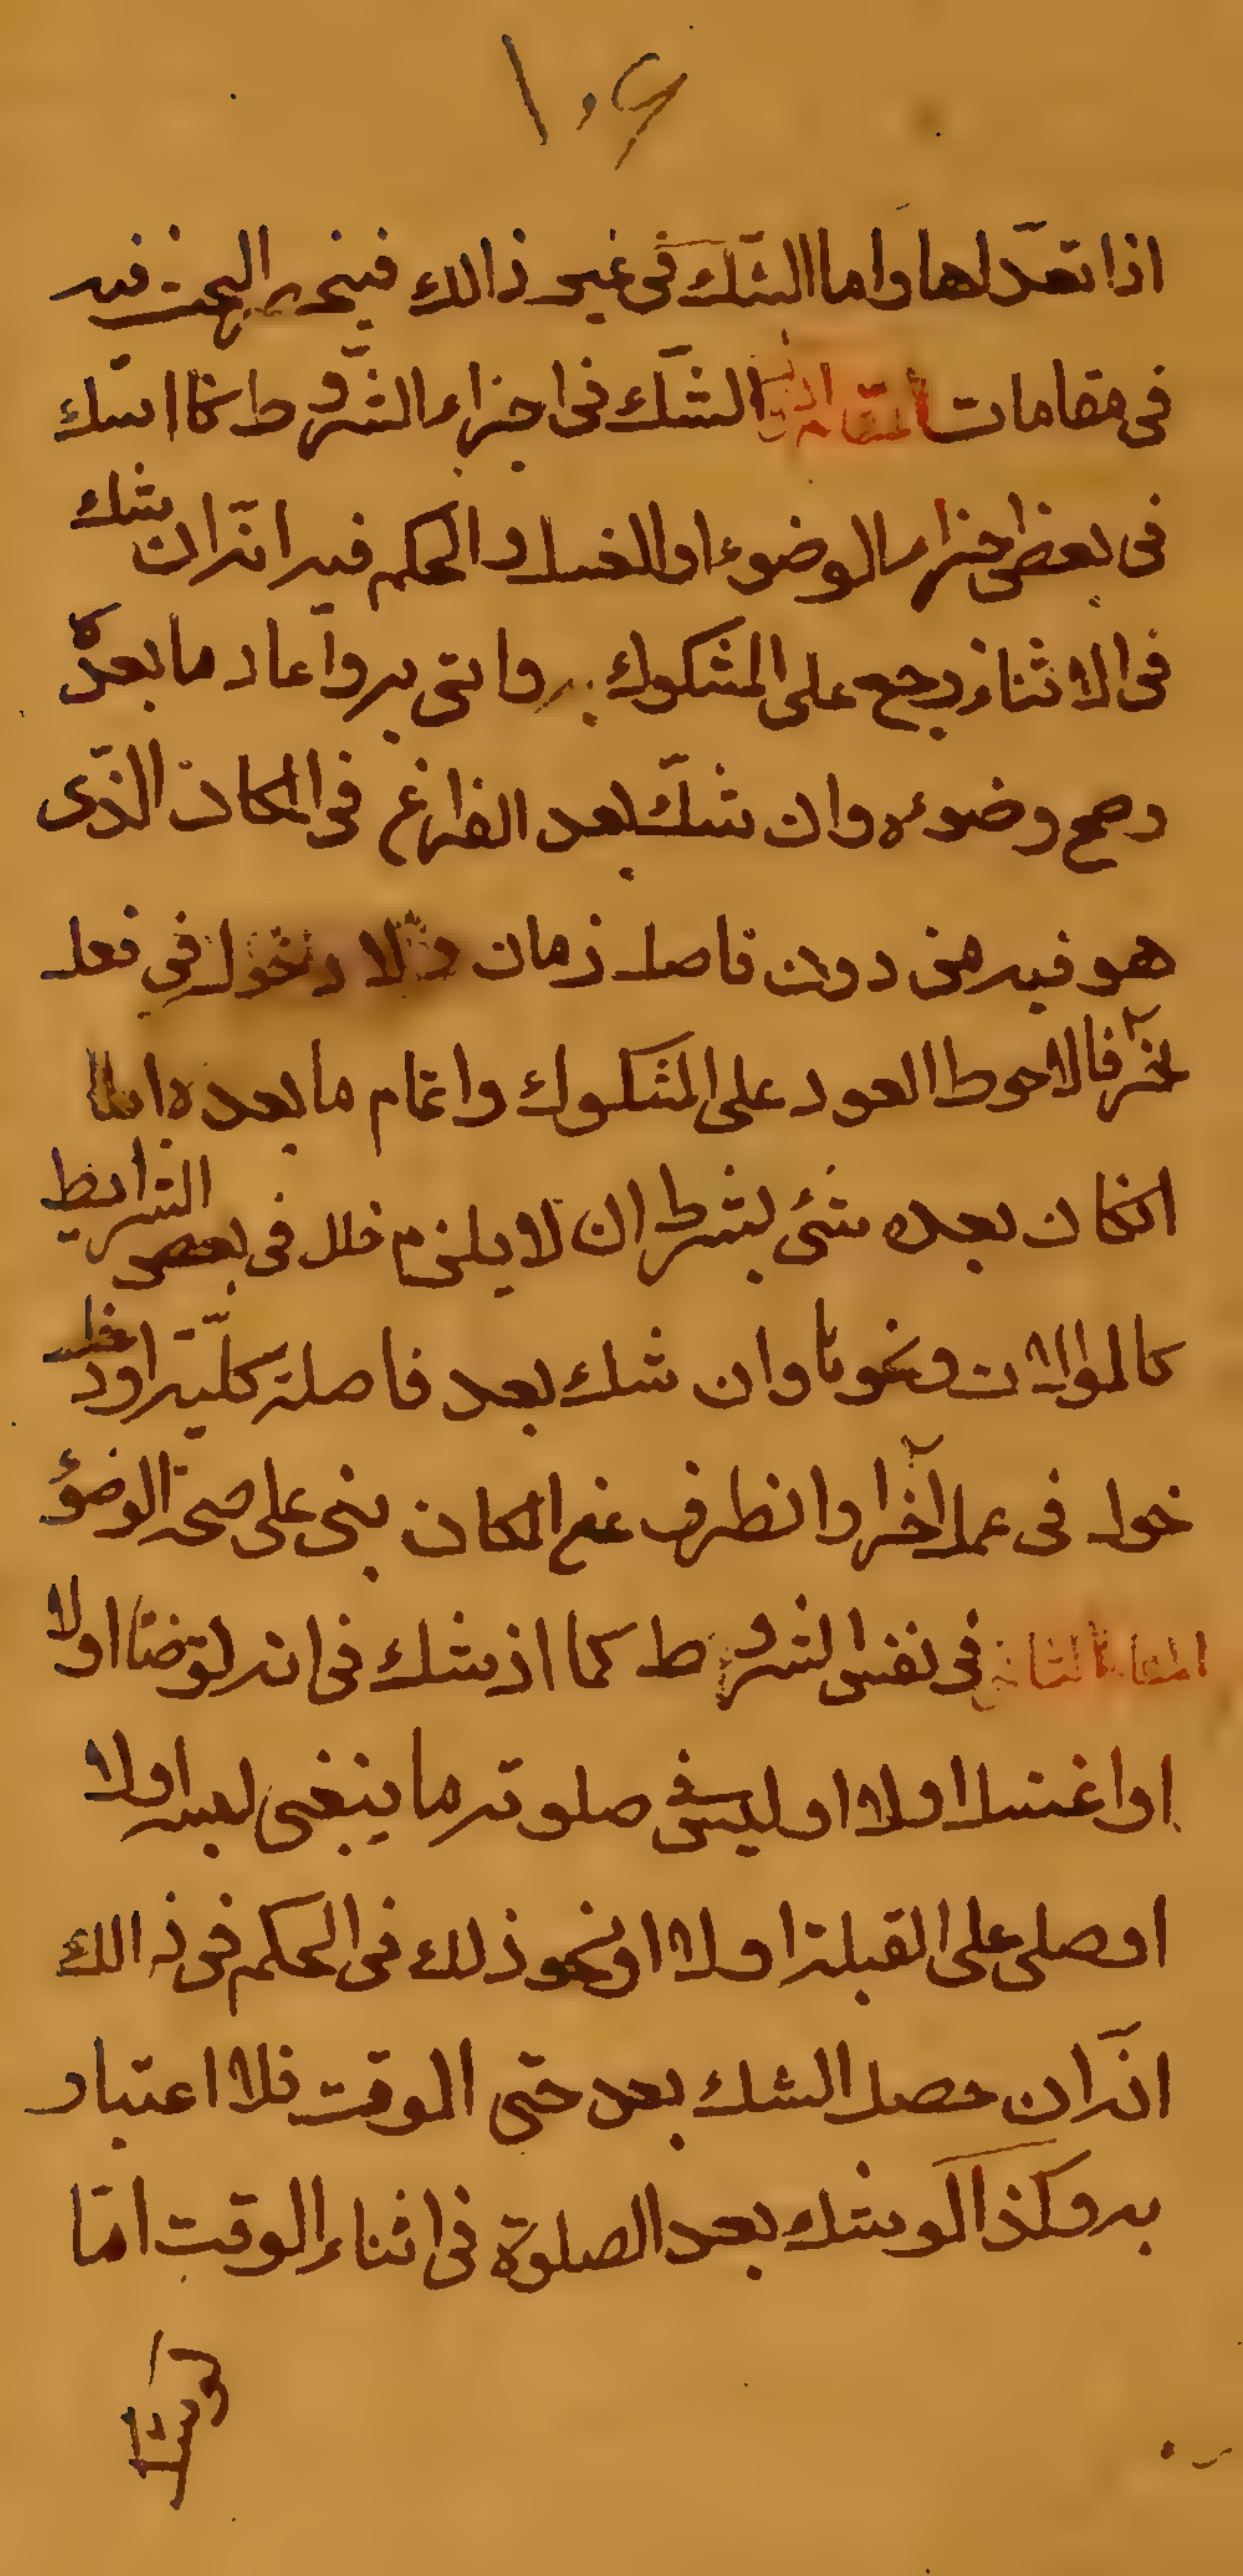 ١٠٤
اذا تعمّد لها واما الشك فى غير ذالك فينجر البحث فيه
فى مقامات المقام الشك فى اجزاء الشروط كما اشك
فى بعض اجزاء الوضوء او الغسل والحكم فيه انه ان شك
فى الاثناء رجع على المشكوك به واتى به واعاد ما بعده
وصح وضوئه وان شك بعد الفراغ فى المكان الذّى
هو فيه من دون فاصل زمان ولا دخول فى فعل
آخر فالاحوط العود على المشكوك واتمام ما بعده
انكان بعده شئ بشرط ان لا يلزم خلل فى بعض الشرايط
كالموالات ونحوها وان شك بعد فاصلة كليّة او د
خول فى عمل آخر وانطرف عن المكان بنى على صحة الوضؤ
المقام الثانى فى نفس الشروط كما اذ شك فى انه توضئا اولا
او اغتسل اولا او لبس فى صلوته ما ينبغى لبسه اولا
او صلى على القبلة اولا او نحو ذلك فى الحكم فى ذالك
انّه ان حصل الشك بعد حتى الوقت فلا اعتبار
به وكذا لو شك بعد الصلوة فى اثناء الوقت امّا